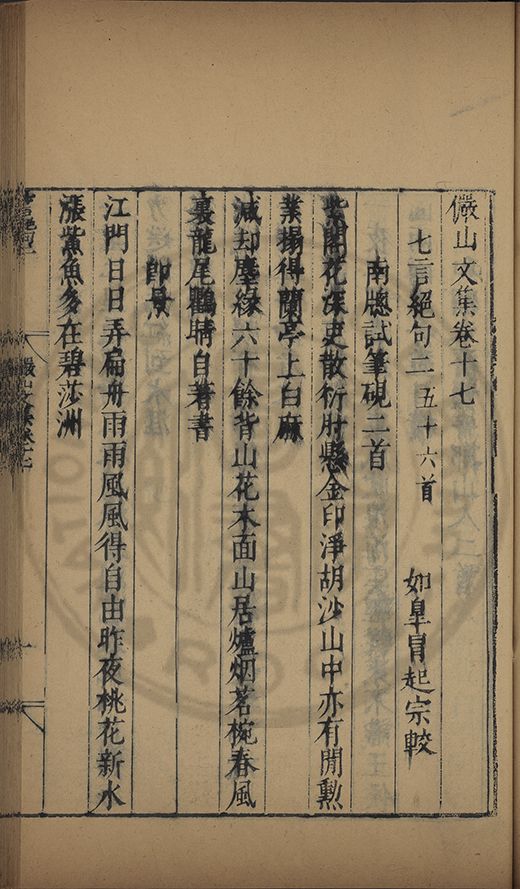 儼山文集卷十七
七言絕句二 五十六首
如臯冒起宗較
南牕試筆硯二首
紫閣花深吏散衙肘懸金印淨胡沙山中亦有閒勲
業搨得蘭亭上白麻
減却塵緣六十餘背山花木面山居爐烟茗椀春風
裏龍尾鸜睛自著書
即景
江門日日弄扁舟雨雨風風得自由昨夜桃花新水
漲鮆魚多在碧莎洲